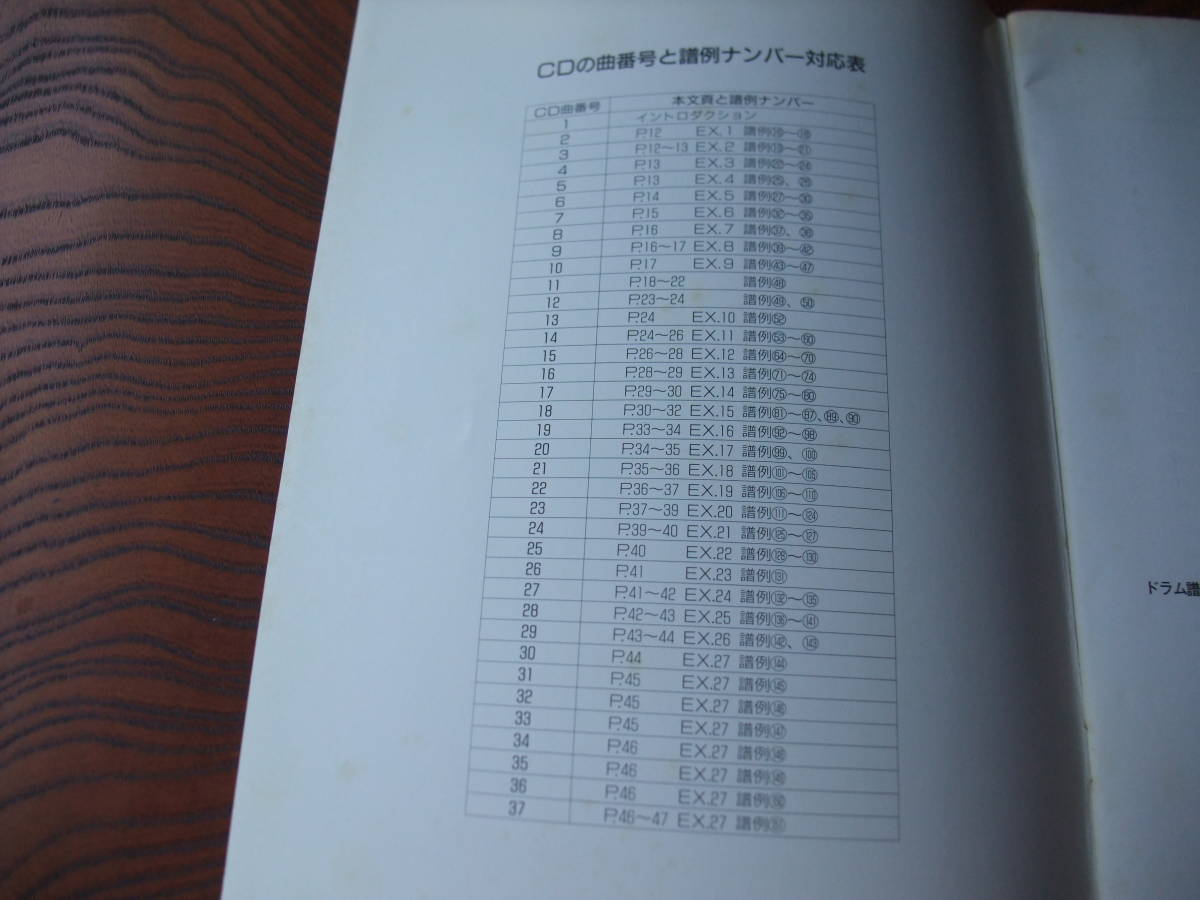 CDの曲番号と譜例ナンバー対応表
CD曲番号 本文頁と譜例ナンバー
1 イントロダクション
2 P.12 EX.1 譜例
3 P.12〜13 EX.2 譜例
4 P.13 EX.3 譜例
5 P.13 EX.4 譜例
6 P.14 EX.5 譜例
7 P.15 EX.6 譜例
8 P.16 EX.7 譜例
9 P.16〜17 EX.8 譜例㊴〜㊷
10 P.17 EX.9 譜例㊸〜㊼
11 P.18〜22 譜例㊽
12 P.23〜24 譜例㊾、㊿
13 P.24 EX.10 譜例52
14 P.24〜26 EX.11 譜例53〜60
15 P.26〜28 EX.12 譜例64〜70
16 P.28〜29 EX.13 譜例71〜74
17 P.29〜30 EX.14 譜例75〜80
18 P.30〜32 EX.15 譜例81〜87、89、90
19 P.33〜34 EX.16 譜例92〜98
20 P.34〜35 EX.17 譜例99、100
21 P.35〜36 EX.18 譜例101〜105
22 P.36〜37 EX.19 譜例106〜110
23 P.37〜39 EX.20 譜例111〜124
24 P.39〜40 EX.21 譜例125〜127
25 P.40 EX.22 譜例128〜130
26 P.41 EX.23 譜例131
27 P.41〜42 EX.24 譜例132〜135
28 P.42〜43 EX.25 譜例136〜141
29 P.43〜44 EX.26 譜例142、143
30 P.44 EX.27 譜例144
31 P.45 EX.27 譜例145
32 P.45 EX.27 譜例146
33 P.45 EX.27 譜例147
34 P.46 EX.27 譜例148
35 P.46 EX.27 譜例149
36 P.46 EX.27 譜例150
37 P.46〜47 EX.27 譜例
ドラム譜